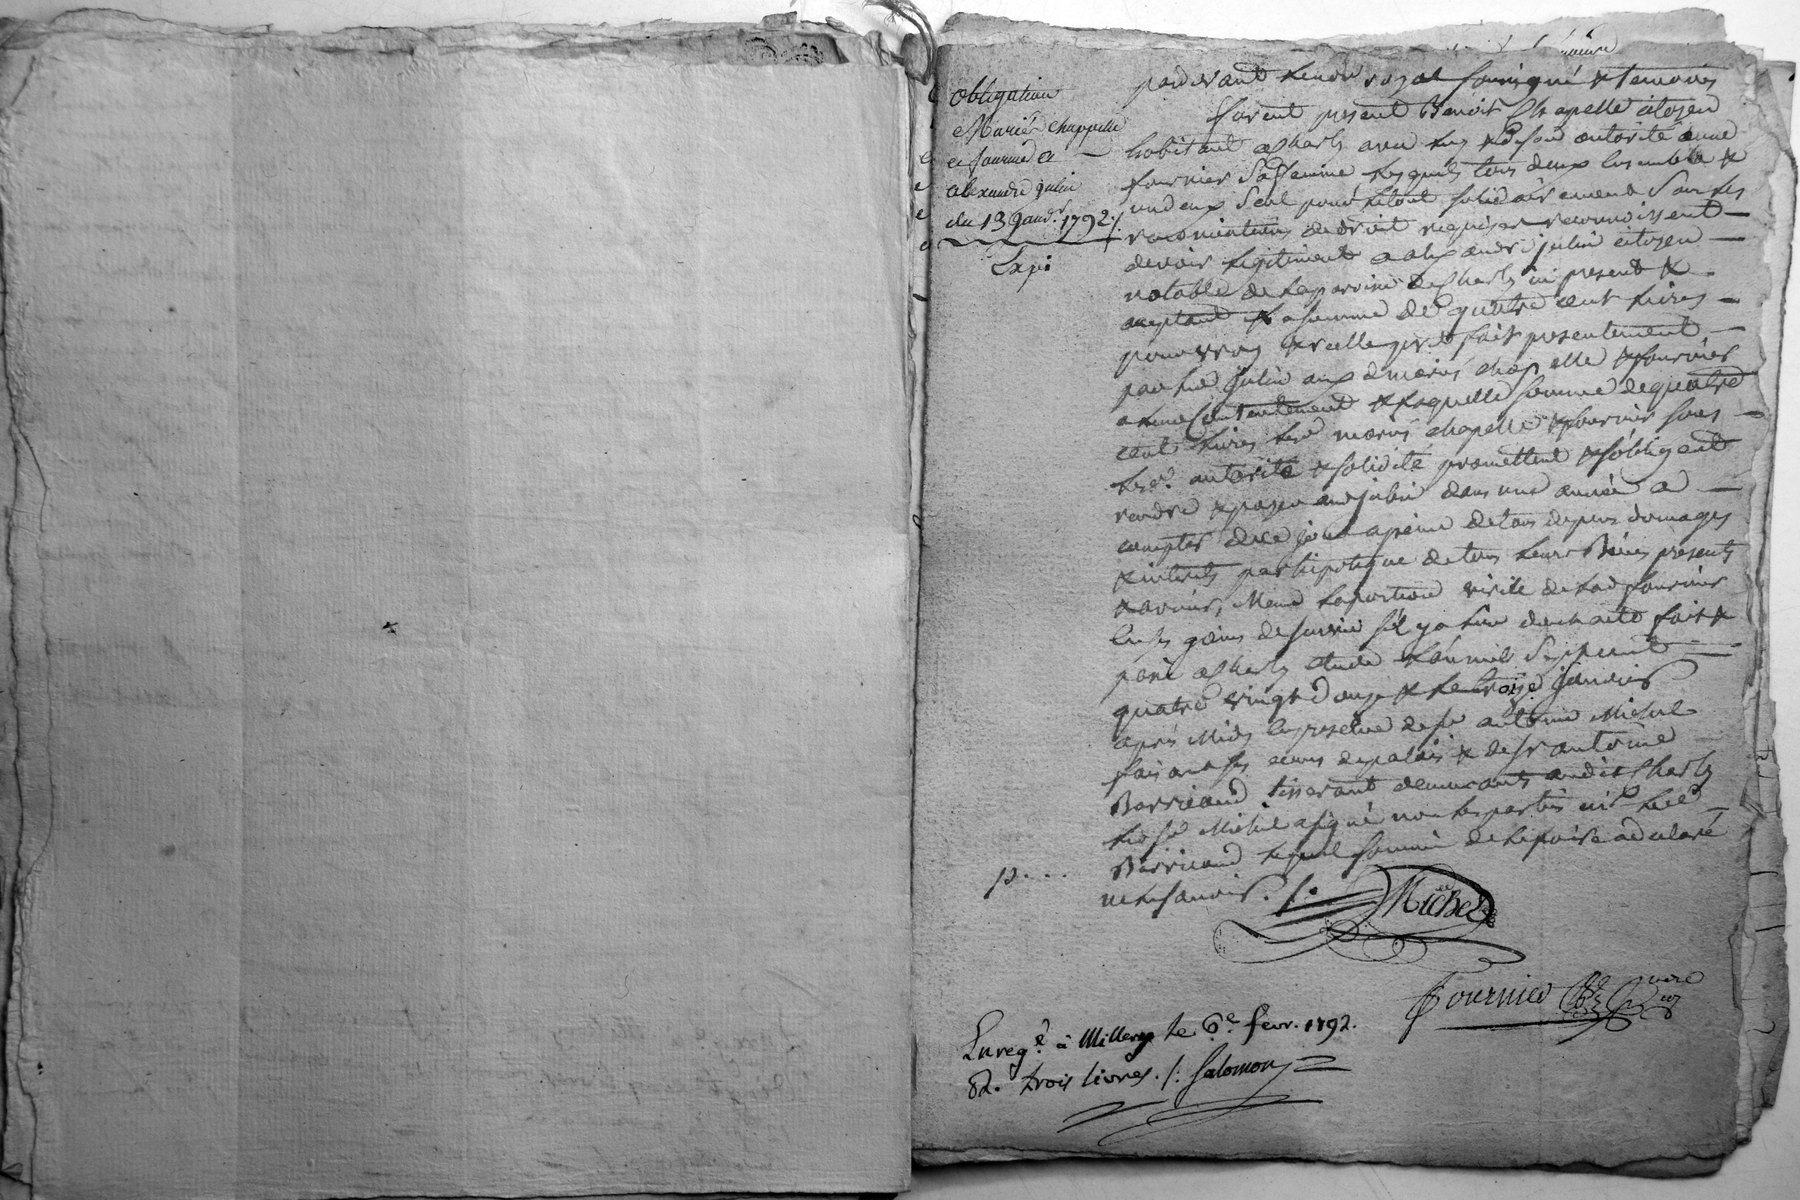 obligation
Mariés chappelle
et fournier a
alexandre julin
du 13 janv.r 1792.
Expé
pardevant le no.re royal soussigné & temoins
furent present Benoit Chapelle citoyen
habitant a Charly avec luy & de son autorité anne
fournier sa femme lesquels tous deux ensemble &
un deux seul pour le tout solidairement sous les
renonciations de droit requises reconnoissent
devoir legitiment a alexandre julin citoyen
notable de la paroisse de Charly icy present &
acceptant la somme de quatre cent livres
pour vray & reelle pret fait presentement
par led julin aux d mariés chapelle & fournier
a leur contentement & laquelle somme de quatre
cent livres lesd. mariés chapelle & fournier sous
lesd. autorité & solidité promettent & sobligent
rendre & payer aud julin dans une année a
compter de ce jour a peine de tous depens domages
& interets par hipoteque de tous leurs Biens presents
& avenir, Meme la portion virile de lad fournier
en ses gains de survie s'il y a lieu dont acte fait &
passé a Charly etude l'an mil sept cent
quatre vingt douze & le treize janvier
après Midy en presence de s.r antoine Michel
faisant ses cours de palais & de s.r antoine
Barricand tisserant demeurants audit Charly
led s.r Michel a signé non les parties ni led.
Barricand lequel sommé de le faire a declaré
ne le savoir. /.
Michel
Fournier
Enreg.é à Millery le 6.e fevr. 1792.
R. trois livres. /. Salomon